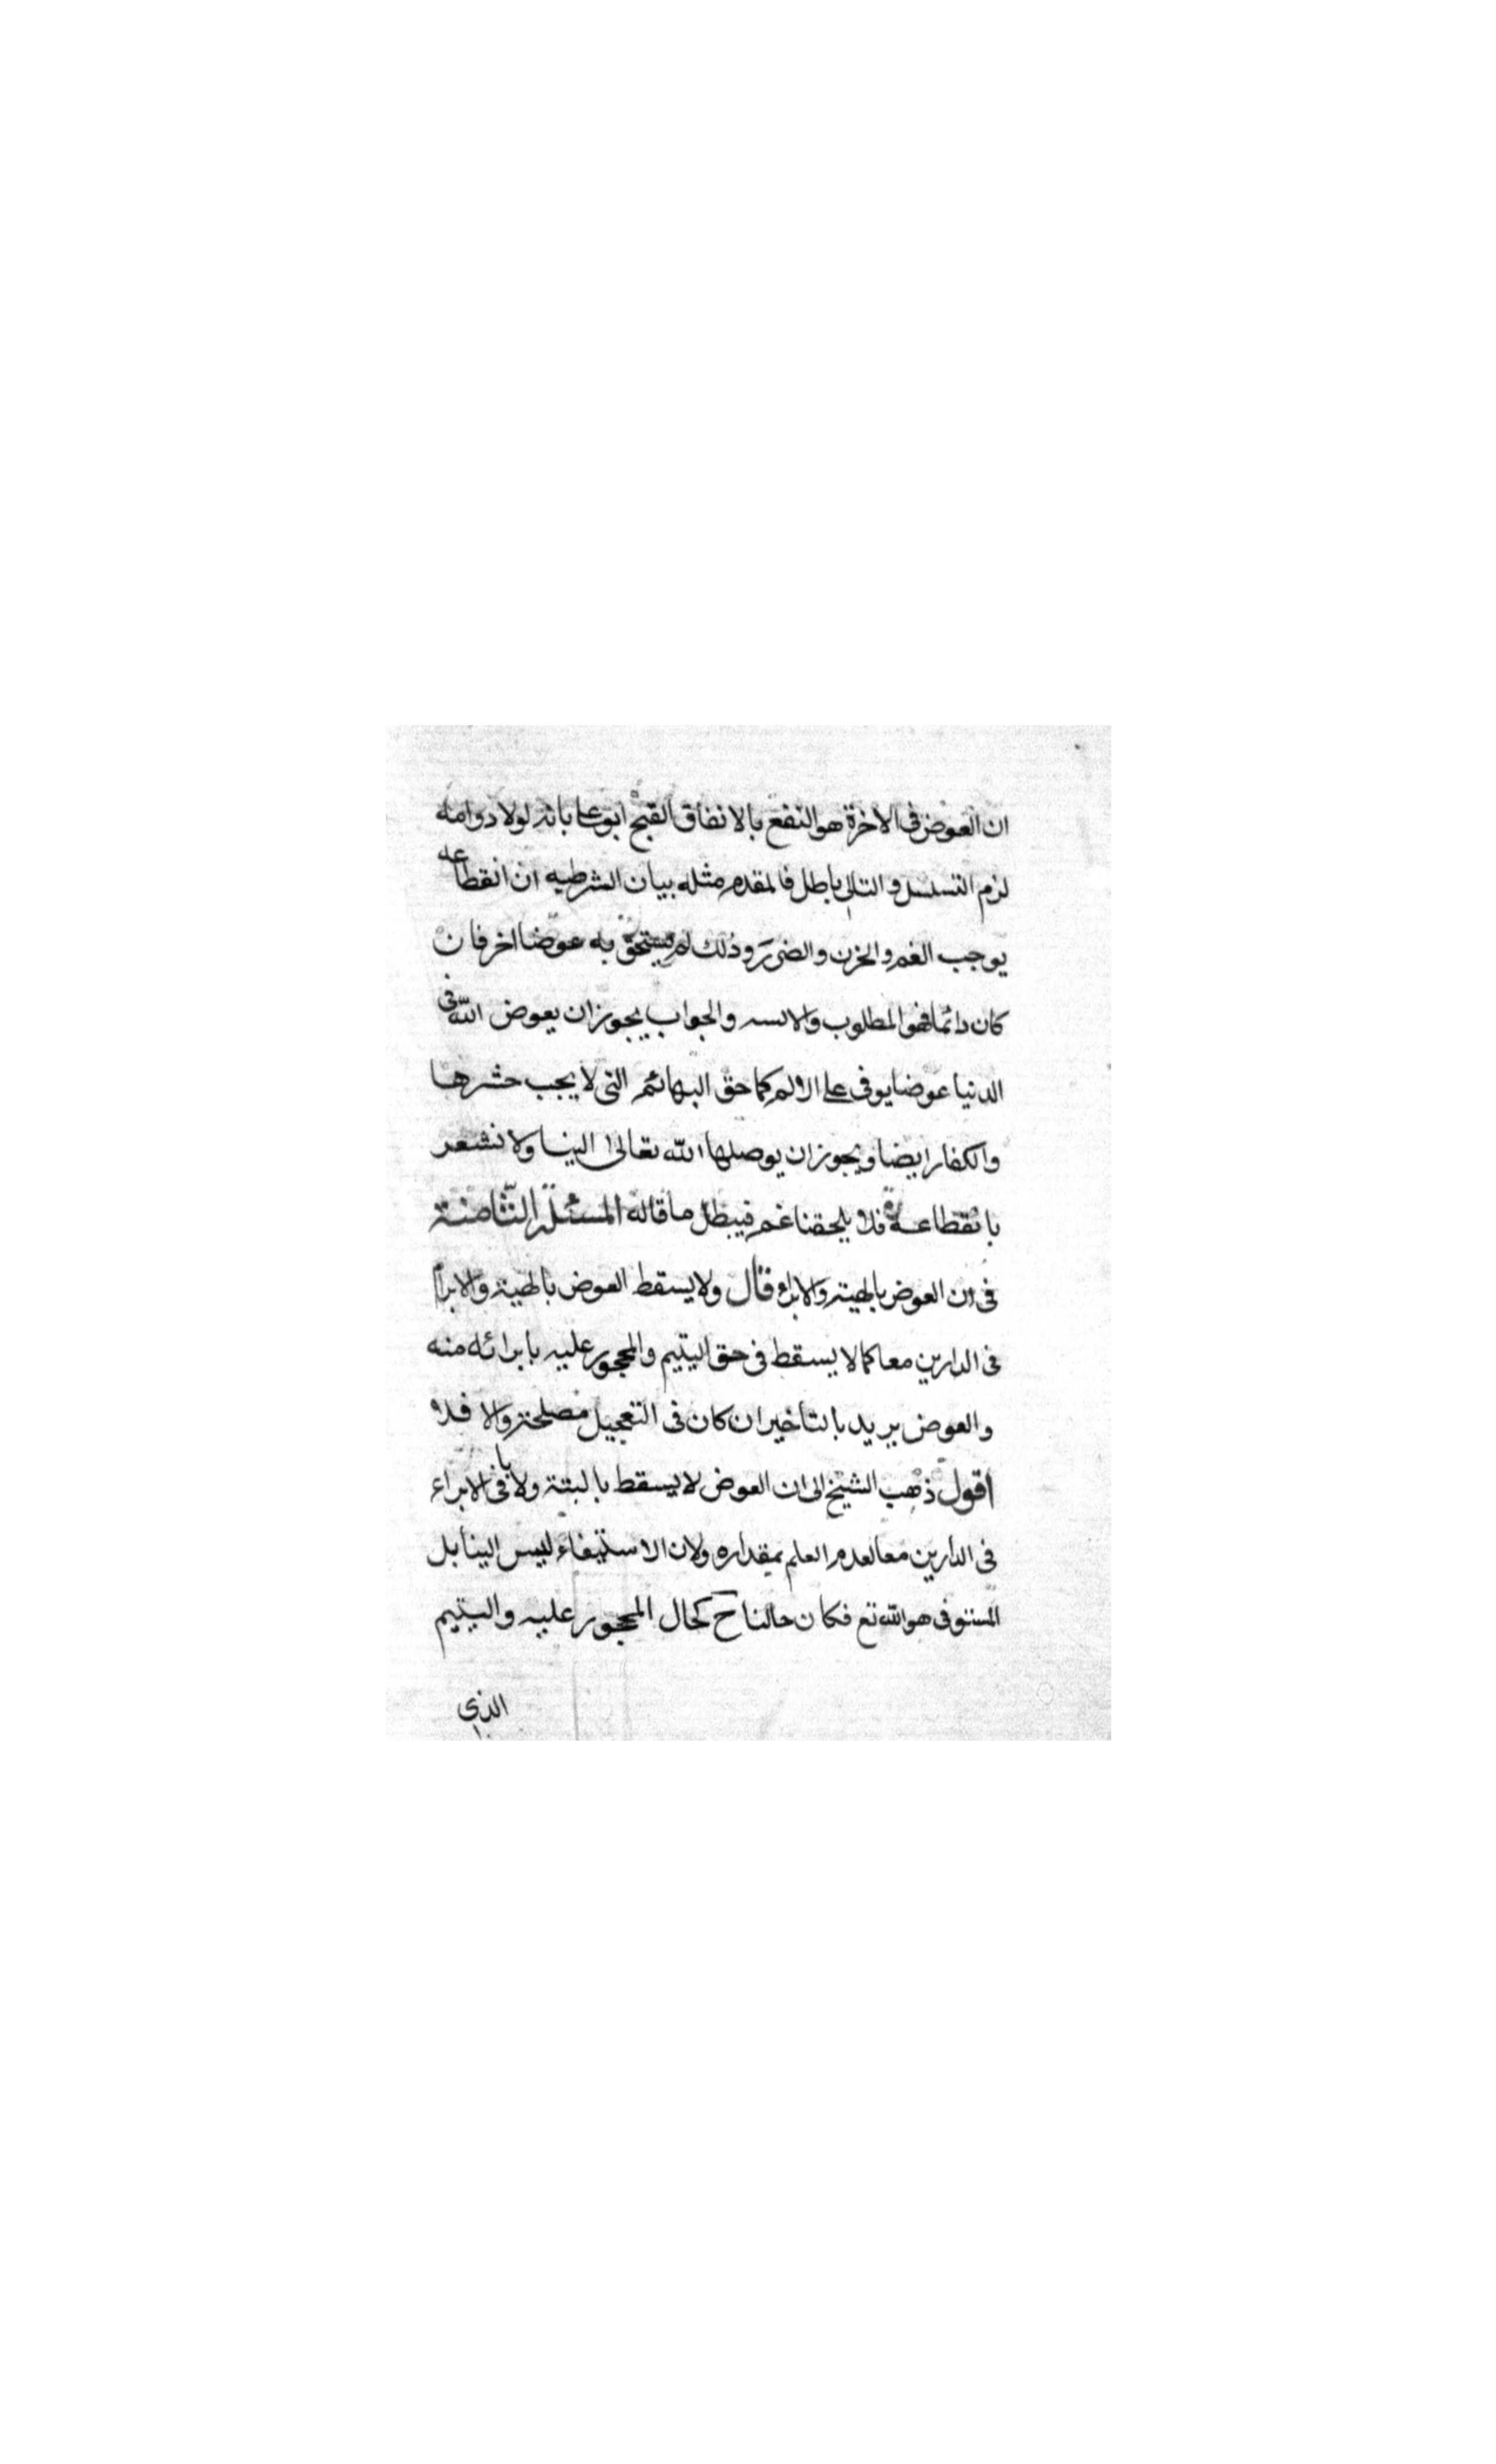 ان العوض فى الاخرة هو النفع بالاتفاق القبح ابو على بانه لولا دوامه
لزم التسلسل والتالى باطل فالمقدم مثله بيان الشرطيه ان انقطاعه
يوجب الغم والحزن والضرر وذلك لم يستحق به عوضا اخر فان
كان دائما فهو المطلوب والا تسه والجواب يجوز ان يعوض الله فى
الدنيا عوضا يوفى على الالم كما حق البهائم التى لا يجب حشرها
والكفار ايضا ويجوز ان يوصلها الله تعالى الينا ولا نشعر
بانقطاعه فلا يلحقنا غم فيبطل ما قاله المسئلة الثامنة
فى ان العوض بالهبة والابراء قال ولا يسقط العوض بالهبة والابراء
فى الدارين معا كما لا يسقط فى حق اليتيم والمحجور عليه بابرائه منه
والعوض يريد بالتأخير ان كان فى التعجيل مصلحة والا فلا
اقول ذهب الشيخ الى ان العوض لا يسقط بالبتة ولا فى الابراء
فى الدارين معا لعدم العلم بمقداره ولان الاستيفاء ليس الينا بل
المستوفى هو الله تع فكان حالنا ح كحال المحجور عليه واليتيم
الذى